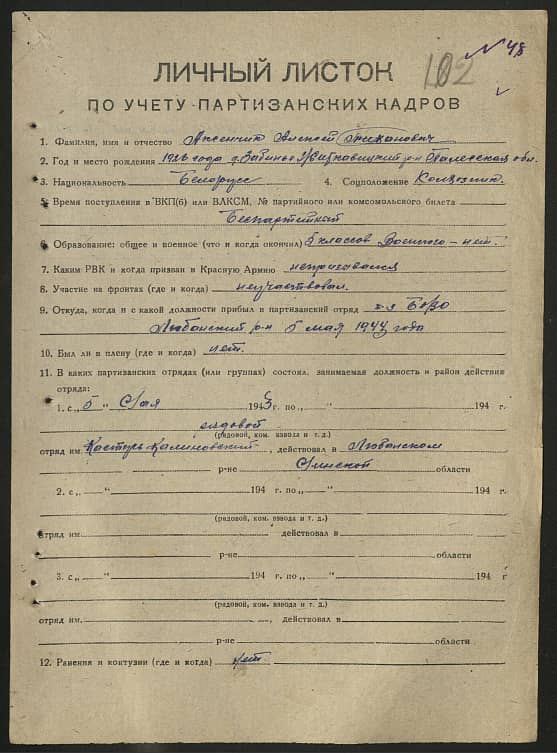 № 48
102
ЛИЧНЫЙ ЛИСТОК
ПО УЧЕТУ ПАРТИЗАНСКИХ КАДРОВ
1. Фамилия, имя и отчество Аксенчик Алексей
2. Год и место рождения 1926 года д. р-н Полесская обл.
3. Национальность Белорусс 4. Соцположение Колхозник.
5. Время поступления в ВКП(б) или ВЛКСМ, № партийного или комсомольского билета
Беспартейный
6. Образование: общее и военное (что и когда окончил) 5 классов Военного – нет.
7. Каким РВК и когда призван в Красную Армию непризывался
8. Участие на фронтах (где и когда) неучаствовал.
9. Откуда, когда и с какой должности прибыл в партизанский отряд
Любанский р-н 5 мая года
10. Был ли в плену (где и когда) нет.
11. В каких партизанских отрядах (или группах) состоял, занимаемая должность и район действия
отряда:
1. с „ 5 " Мая 1943 г. по „ " 194 г.
рядовой
(рядовой, ком. взвода и т. д.)
отряд им. Кастуся Калиновский, действовал в Любанском
р-не Минской области
2. с „ " 194 г. по „ " 194 г.
(рядовой, ком. взвода и т. д.)
отряд им. действовал в
р-не области
3. с „ " 194 г. по „ " 194 г
(рядовой, ком. взвода и т. д.)
отряд им. , действовал в
р-не области
12. Ранения и контузии (где и когда) нет